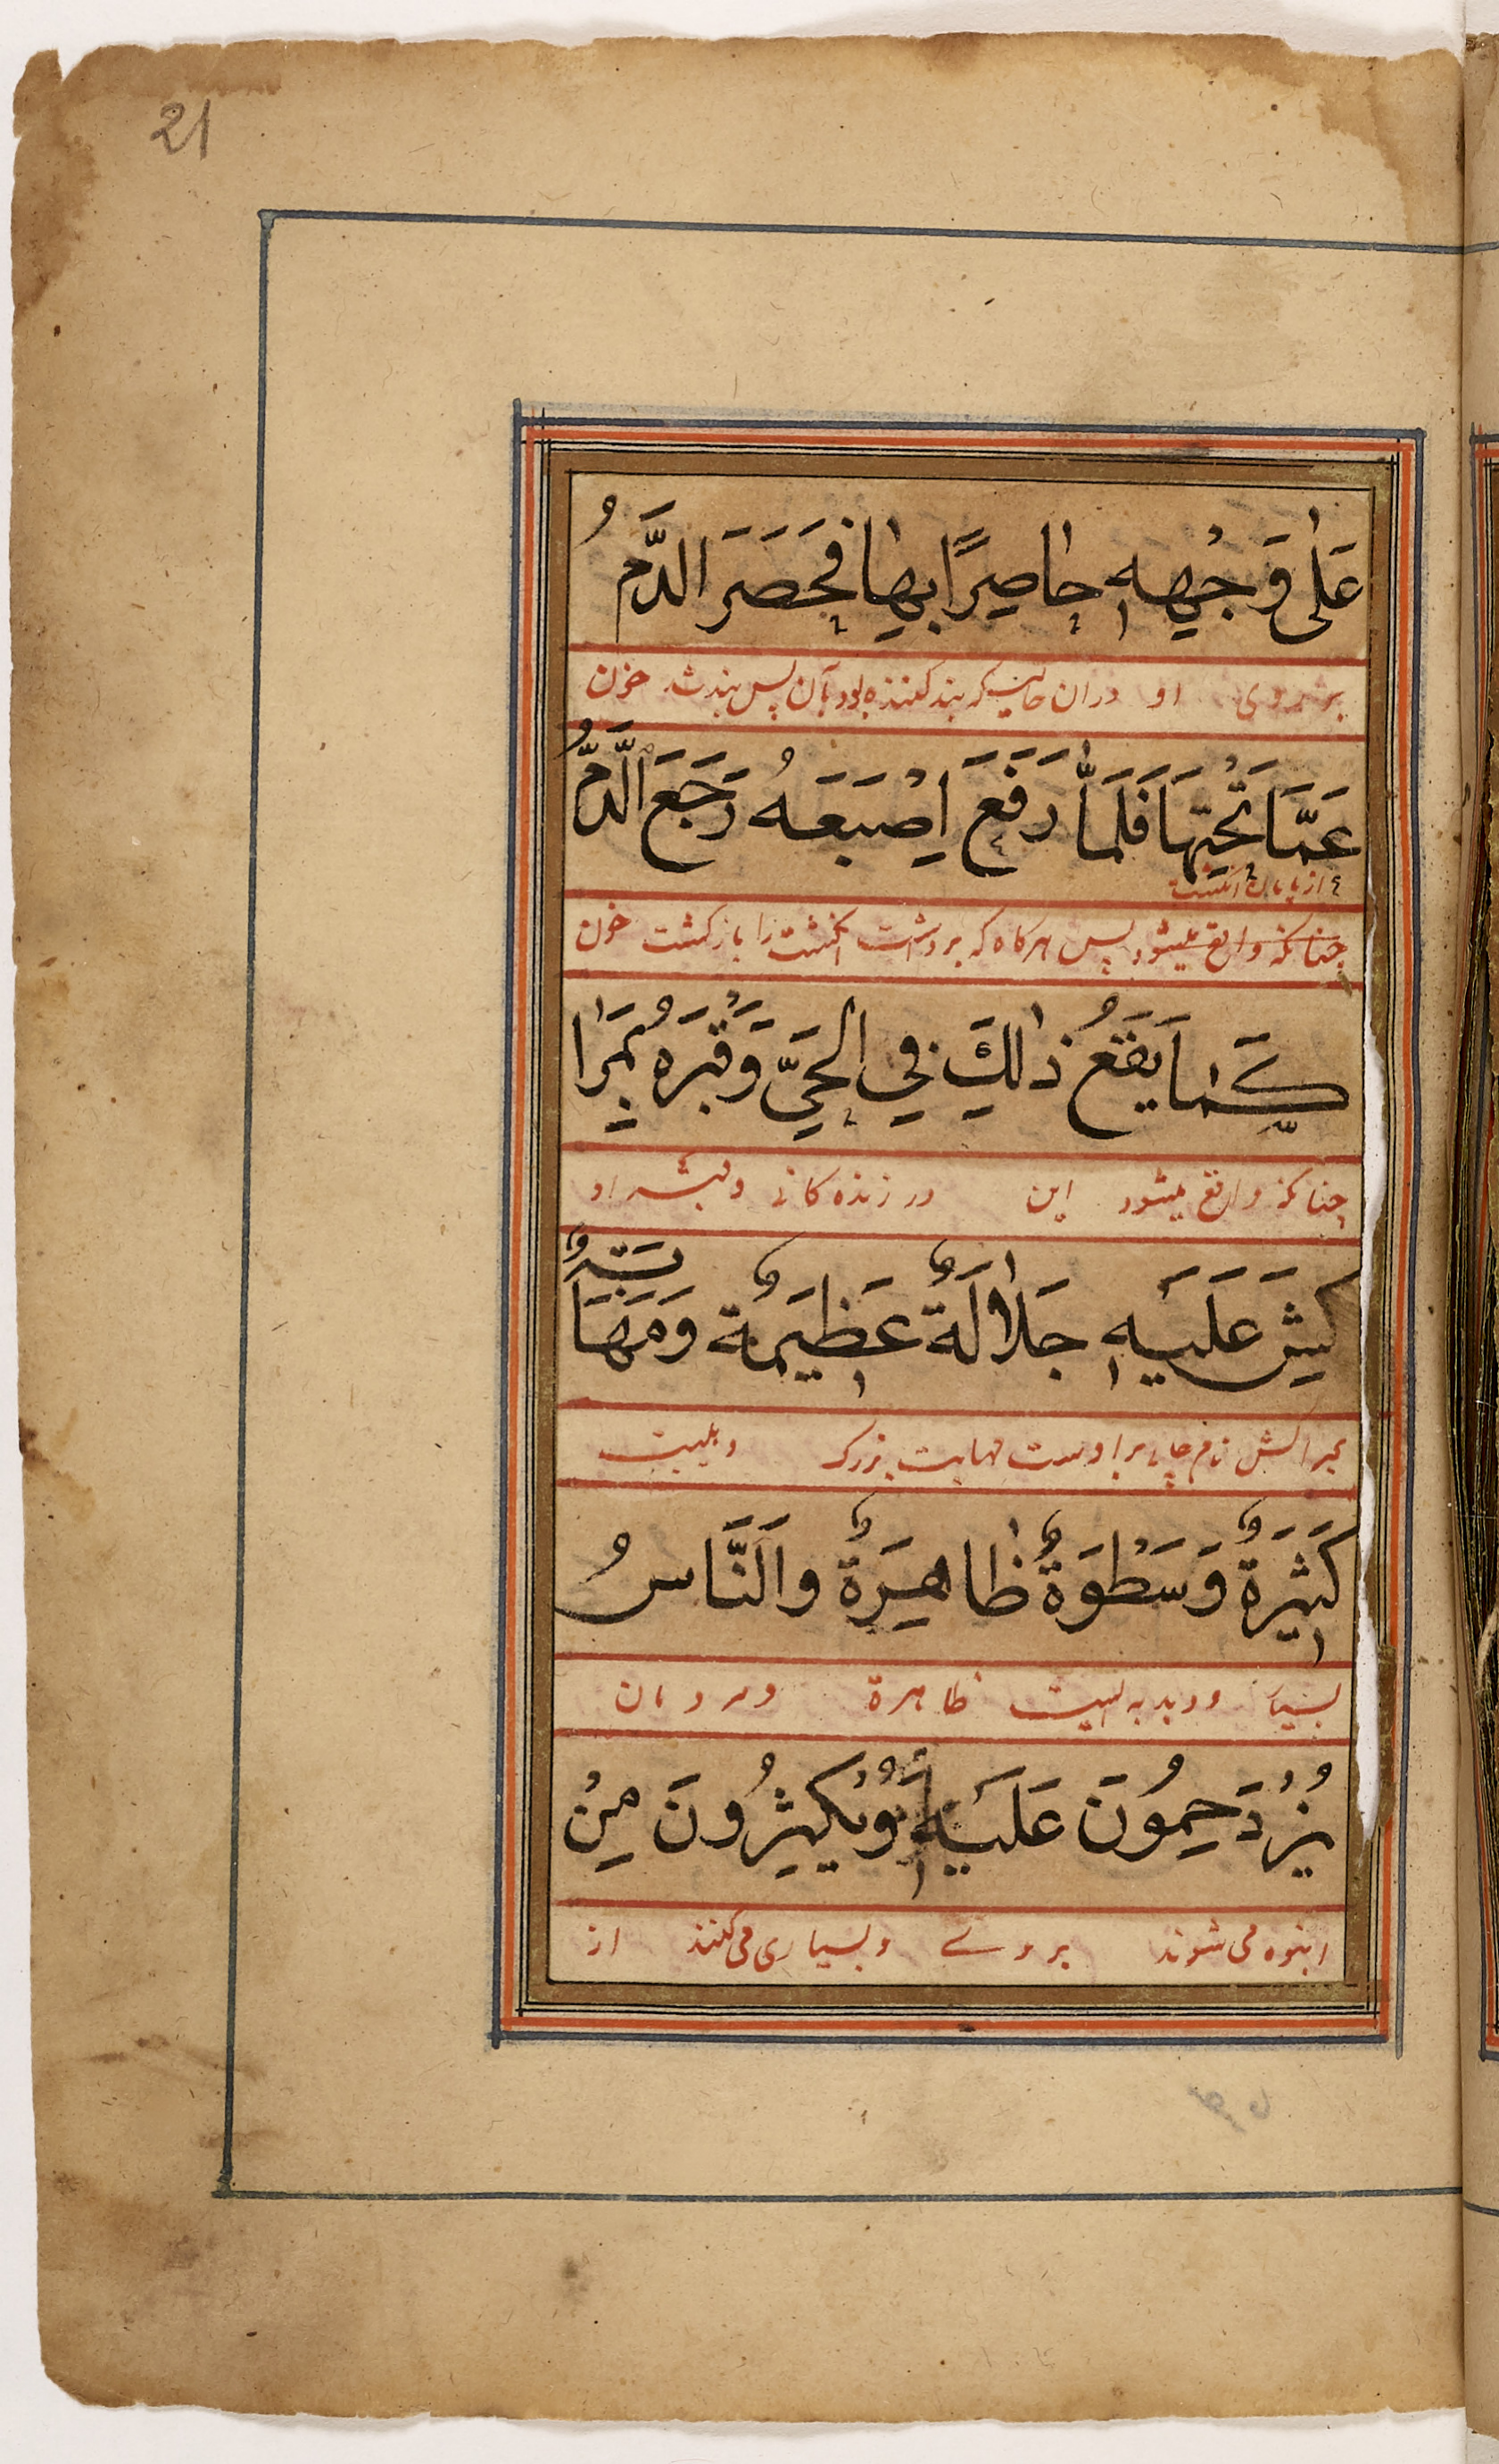 21
عَلٰى وَجْهِهٖ حٰاصِرًا بِهٰا فَحَصَرَ الدَّمُ
بر روی او دران حالیکه بند کننده بود بآن پس بند شد خون
عَمَّا تَحْتِهَا فَلَمَّا رَفَعَ اِصْبَعَهُ رَجَعَ الَّدمُّ
از پایان انگشت
چنانکه واقع میشود پس هرکاه که برداشت انگشت را بازکشت خون
كَمٰا يَقَعُ ذٰلِكَ فِي الْحَيِّ وَقَبْرَهُ بِمَرٰا
چنانکه واقع میشود این در زنده کانی وقبر او
كِشَ عَلَيْهِ جَلاٰلَةٌ عَظِيْمَةٌ وَمَهَابَةٌ
بمراکش نام جای براوست مهابت بزرک و
كَثِيْرَةٌ وَسَطْوَةٌ ظٰاهِرَةٌ وَالَنَّاسُ
بسیار ودبدبه ایست ظاهرة ومردمان
يَزْدَحِمُوْنَ عَلَيْهِ وَيُكْثِرُونَ مِنْ
انبوه می شوند بر وے وبسیاری می کنند از